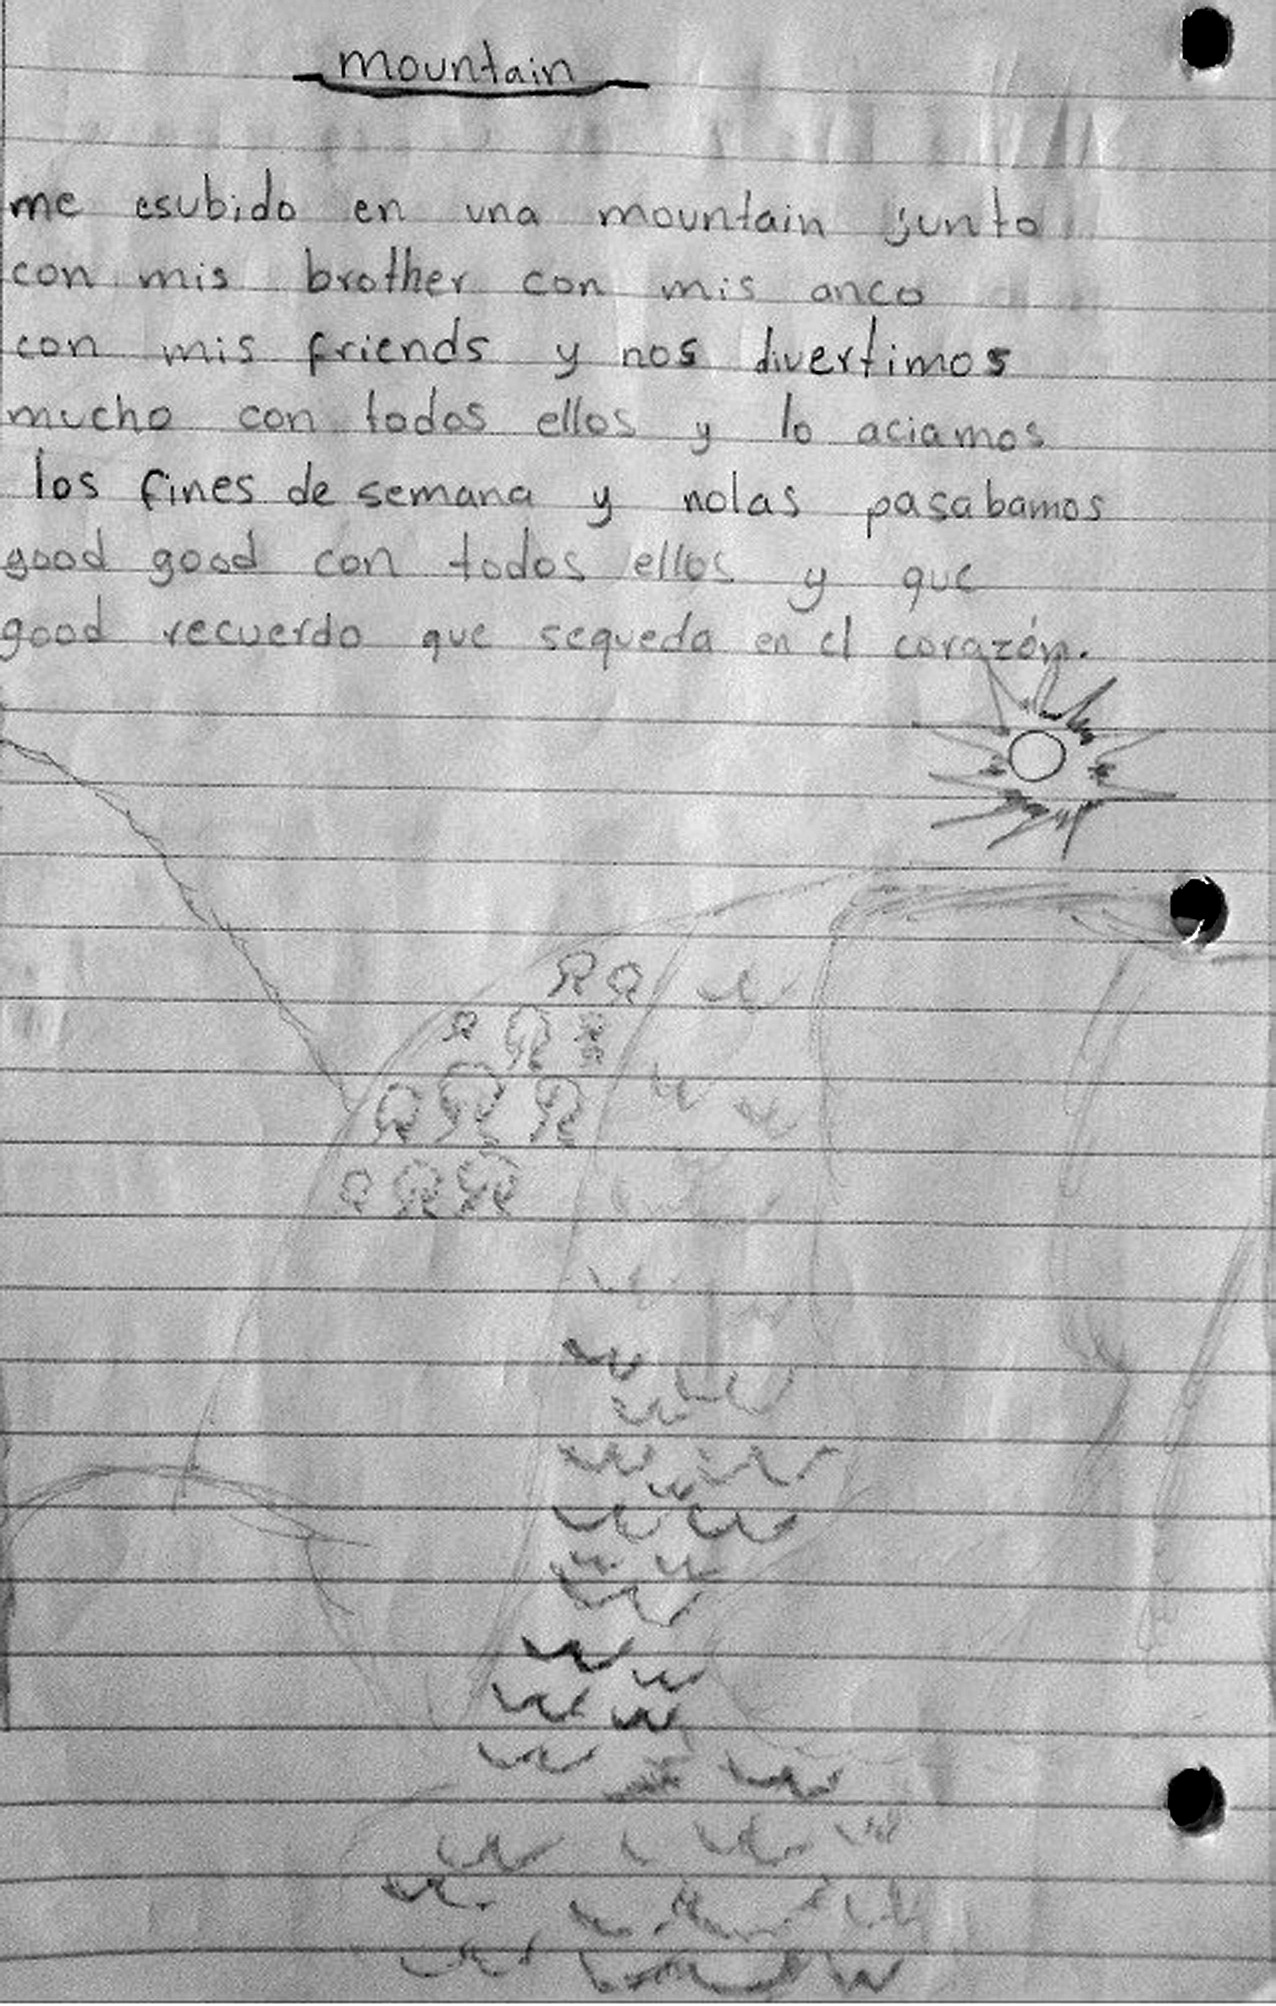 mountain
me esubido en una mountain junto
con mis brother con mis anco
con mis friends y nos divertimos
mucho con todos ellos y lo aciamos
los fines de semana y nolas pasabamos
good good con todos ellos y que
good recuerdo que sequeda en el corazón.